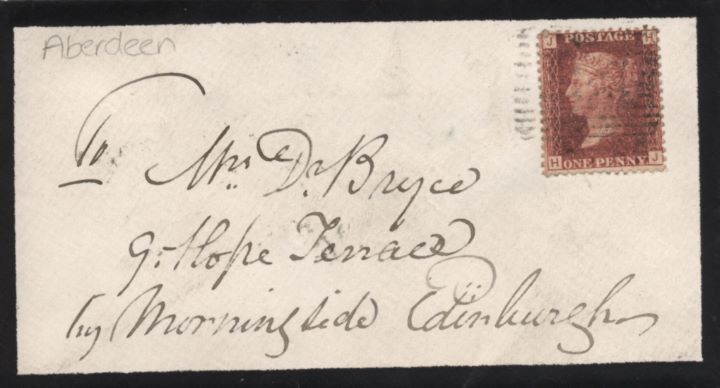 Aberdeen
J POSTAGE H
H ONE PENNY J
To
Mrs Dr Bryce
9. Hope Terrace
by Morningside Edinburgh